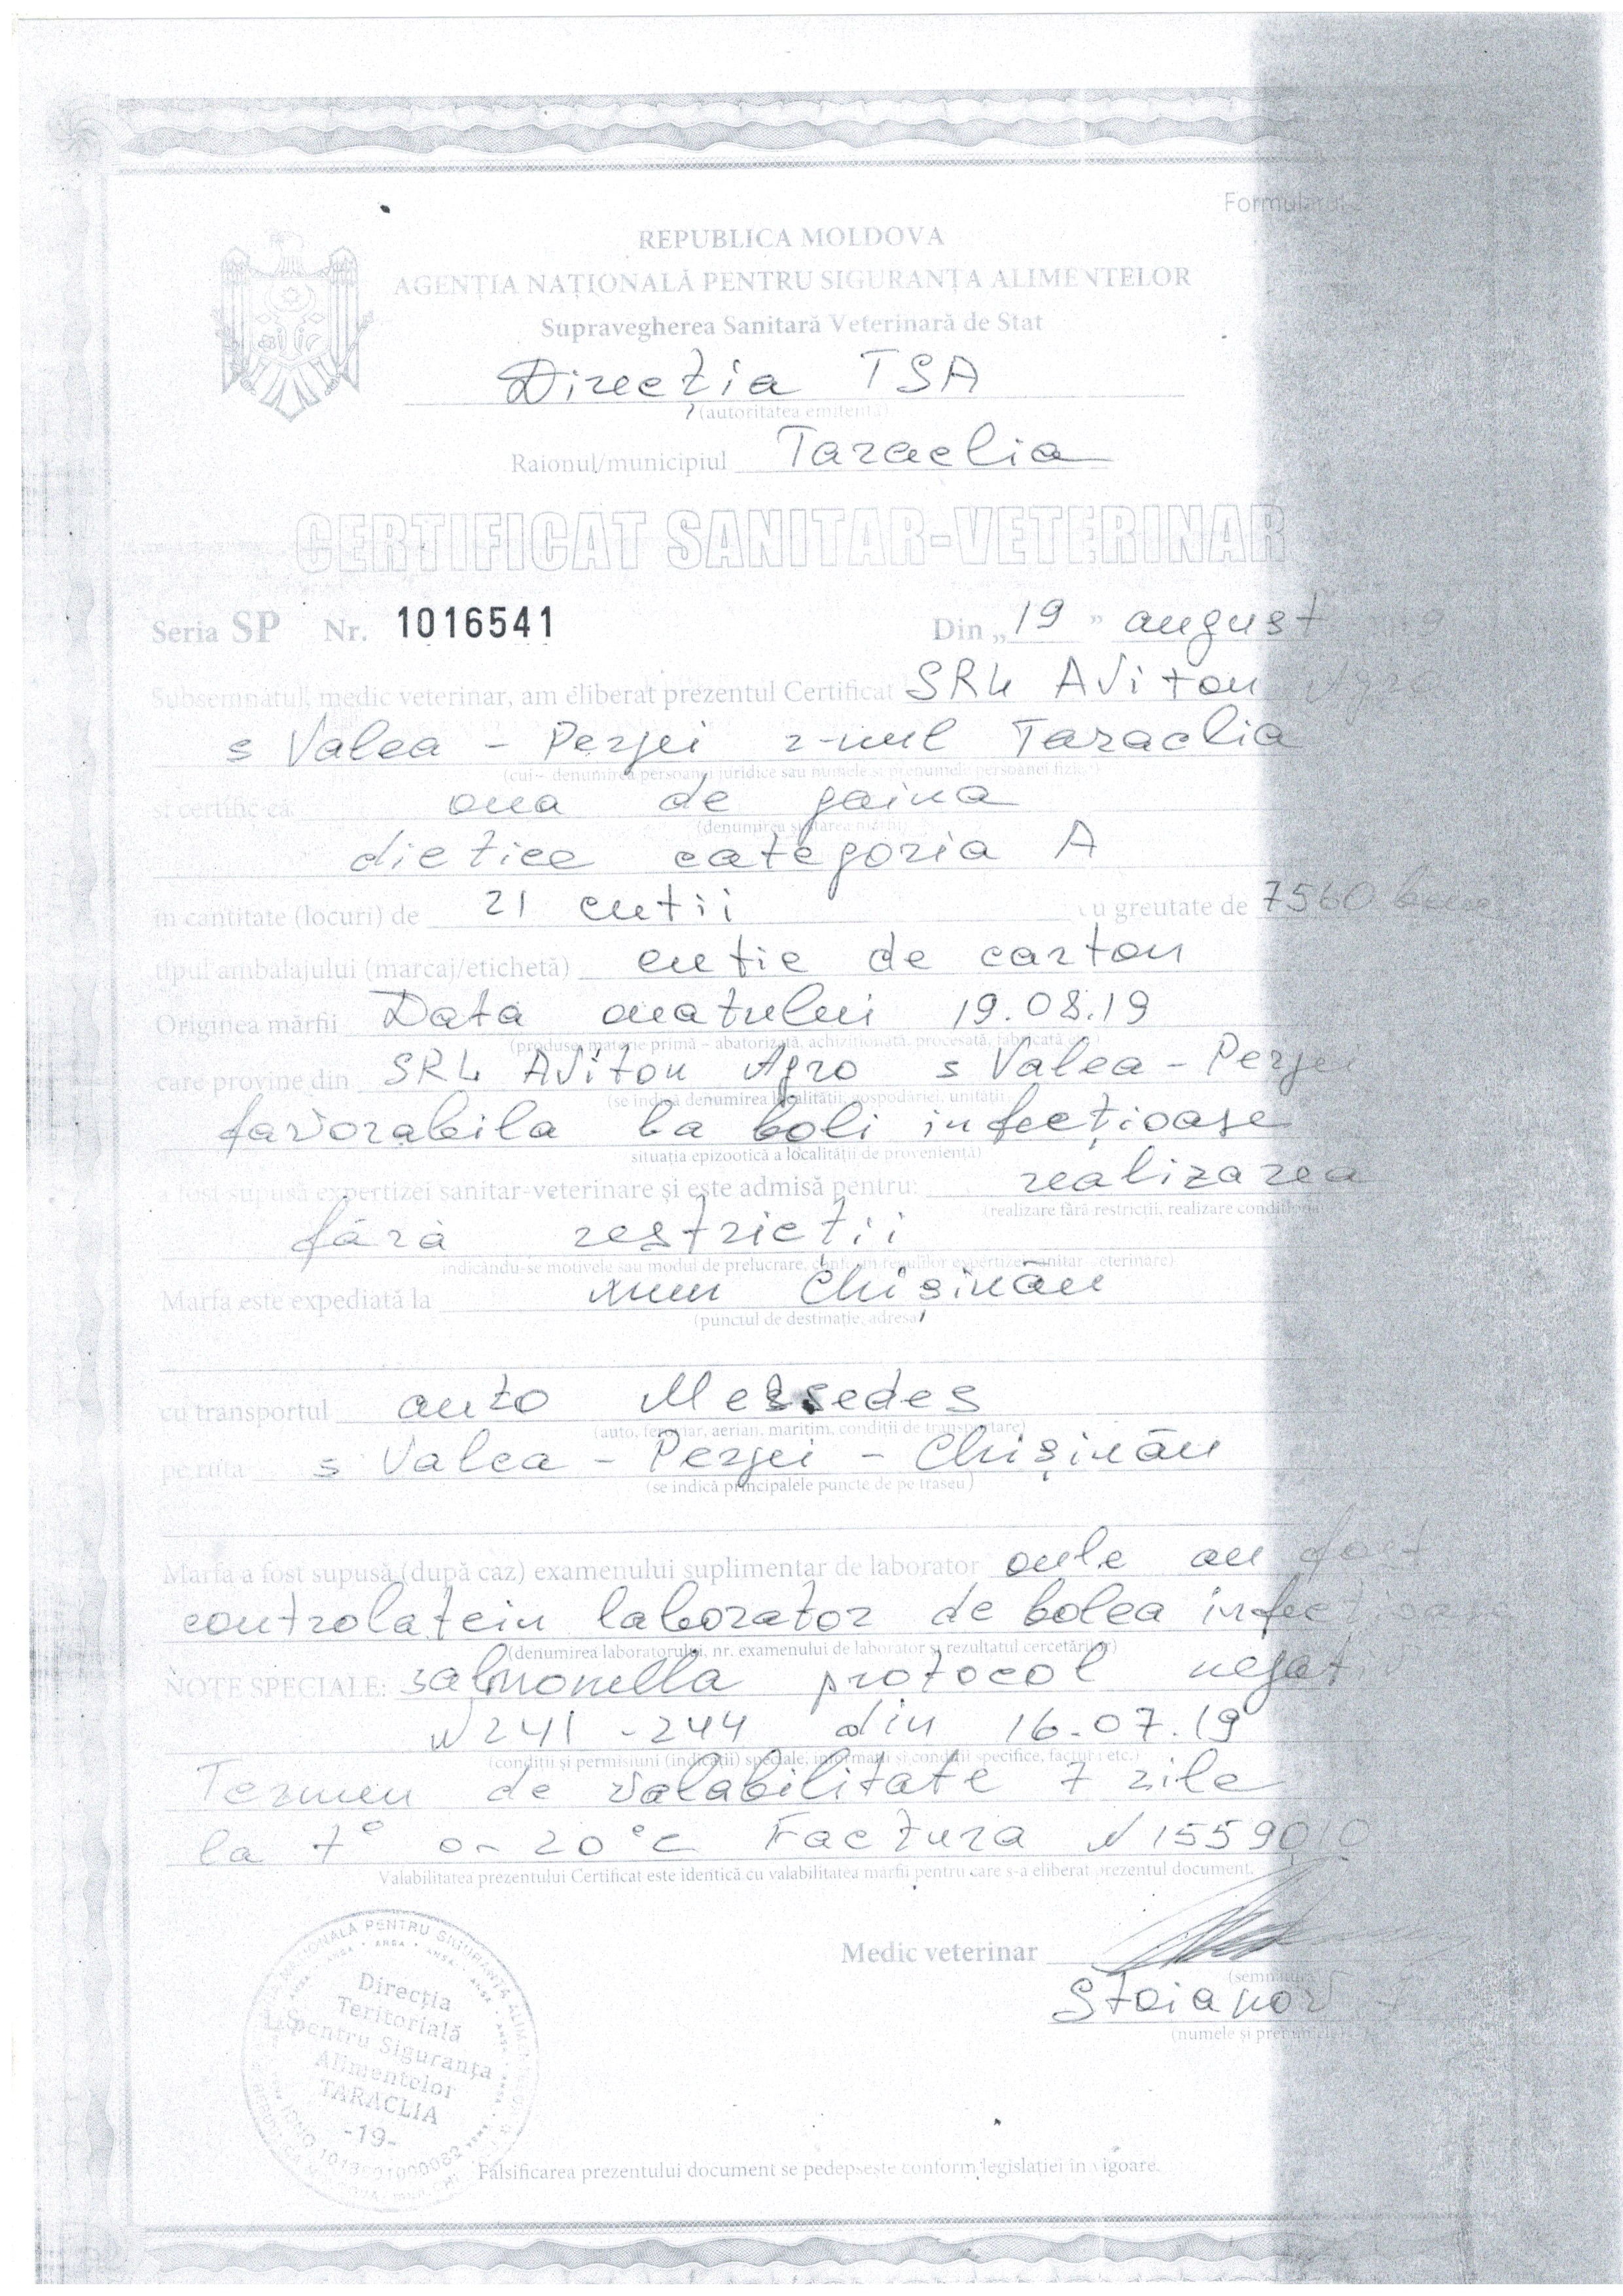 Formularul
REPUBLICA MOLDOVA
AGENȚIA NAȚIONALĂ PENTRU SIGURANȚA ALIMENTELOR
Supravegherea Sanitară Veterinară de Stat
Direcția TSA
(autoritatea emitentă)
Raionul/municipiul Taraclia
CERTIFICAT SANITAR-VETERINAR
Seria SP Nr. 1016541 Din „19” august
Subsemnatul, medic veterinar, am eliberat prezentul Certificat SRL Aviton Agro
s Valea - Perjei r-nul Taraclia
(cui – denumirea persoanei juridice sau numele și prenumele persoanei fizice)
și certific că oua de gaina
(denumirea și starea mărfii)
dietice categoria A
în cantitate (locuri) de 21 cutii cu greutate de 7560 buc
tipul ambalajului (marcaj/etichetă) cutie de carton
Originea mărfii Data ouatului 19.08.19
(produse, materie primă – abatorizată, achiziționată, procesată, fabricată etc.)
care provine din SRL Aviton Agro s Valea - Perjei
(se indică denumirea localității, gospodăriei, unității
favorabila la boli infecțioase
situația epizootică a localității de proveniență)
a fost supusă expertizei sanitar-veterinare și este admisă pentru: realizarea
(realizare fără restricții, realizare condiționată
fără restrictii
indicându-se motivele sau modul de prelucrare, conform regulilor expertizei sanitar-veterinare)
Marfa este expediată la mun Chișinău
(punctul de destinație, adresa)
cu transportul auto Messedes
(auto, feroviar, aerian, maritim, condiții de transportare)
pe ruta s Valea - Perjei - Chișinău
(se indică principalele puncte de pe traseu)
Marfa a fost supusă (după caz) examenului suplimentar de laborator oule au fost
controlatein laborator de bolea infectioase
(denumirea laboratorului, nr. examenului de laborator și rezultatul cercetărilor)
NOTE SPECIALE: salmonella protocol negativ
N 241 - 244 din 16.07.19
(condiții și permisiuni (indicații) speciale, informații și condiții specifice, factori etc.)
Termen de valabilitate 7 zile
la 7° 0 - 20°C Factura N 1559010
Valabilitatea prezentului Certificat este identică cu valabilitatea mărfii pentru care s-a eliberat prezentul document.
Medic veterinar
(semnătura)
Stoianov
(numele și prenumele)
Direcția
Teritorială
pentru Siguranța
Alimentelor
TARACLIA
-19-
Falsificarea prezentului document se pedepsește conform legislației în vigoare.